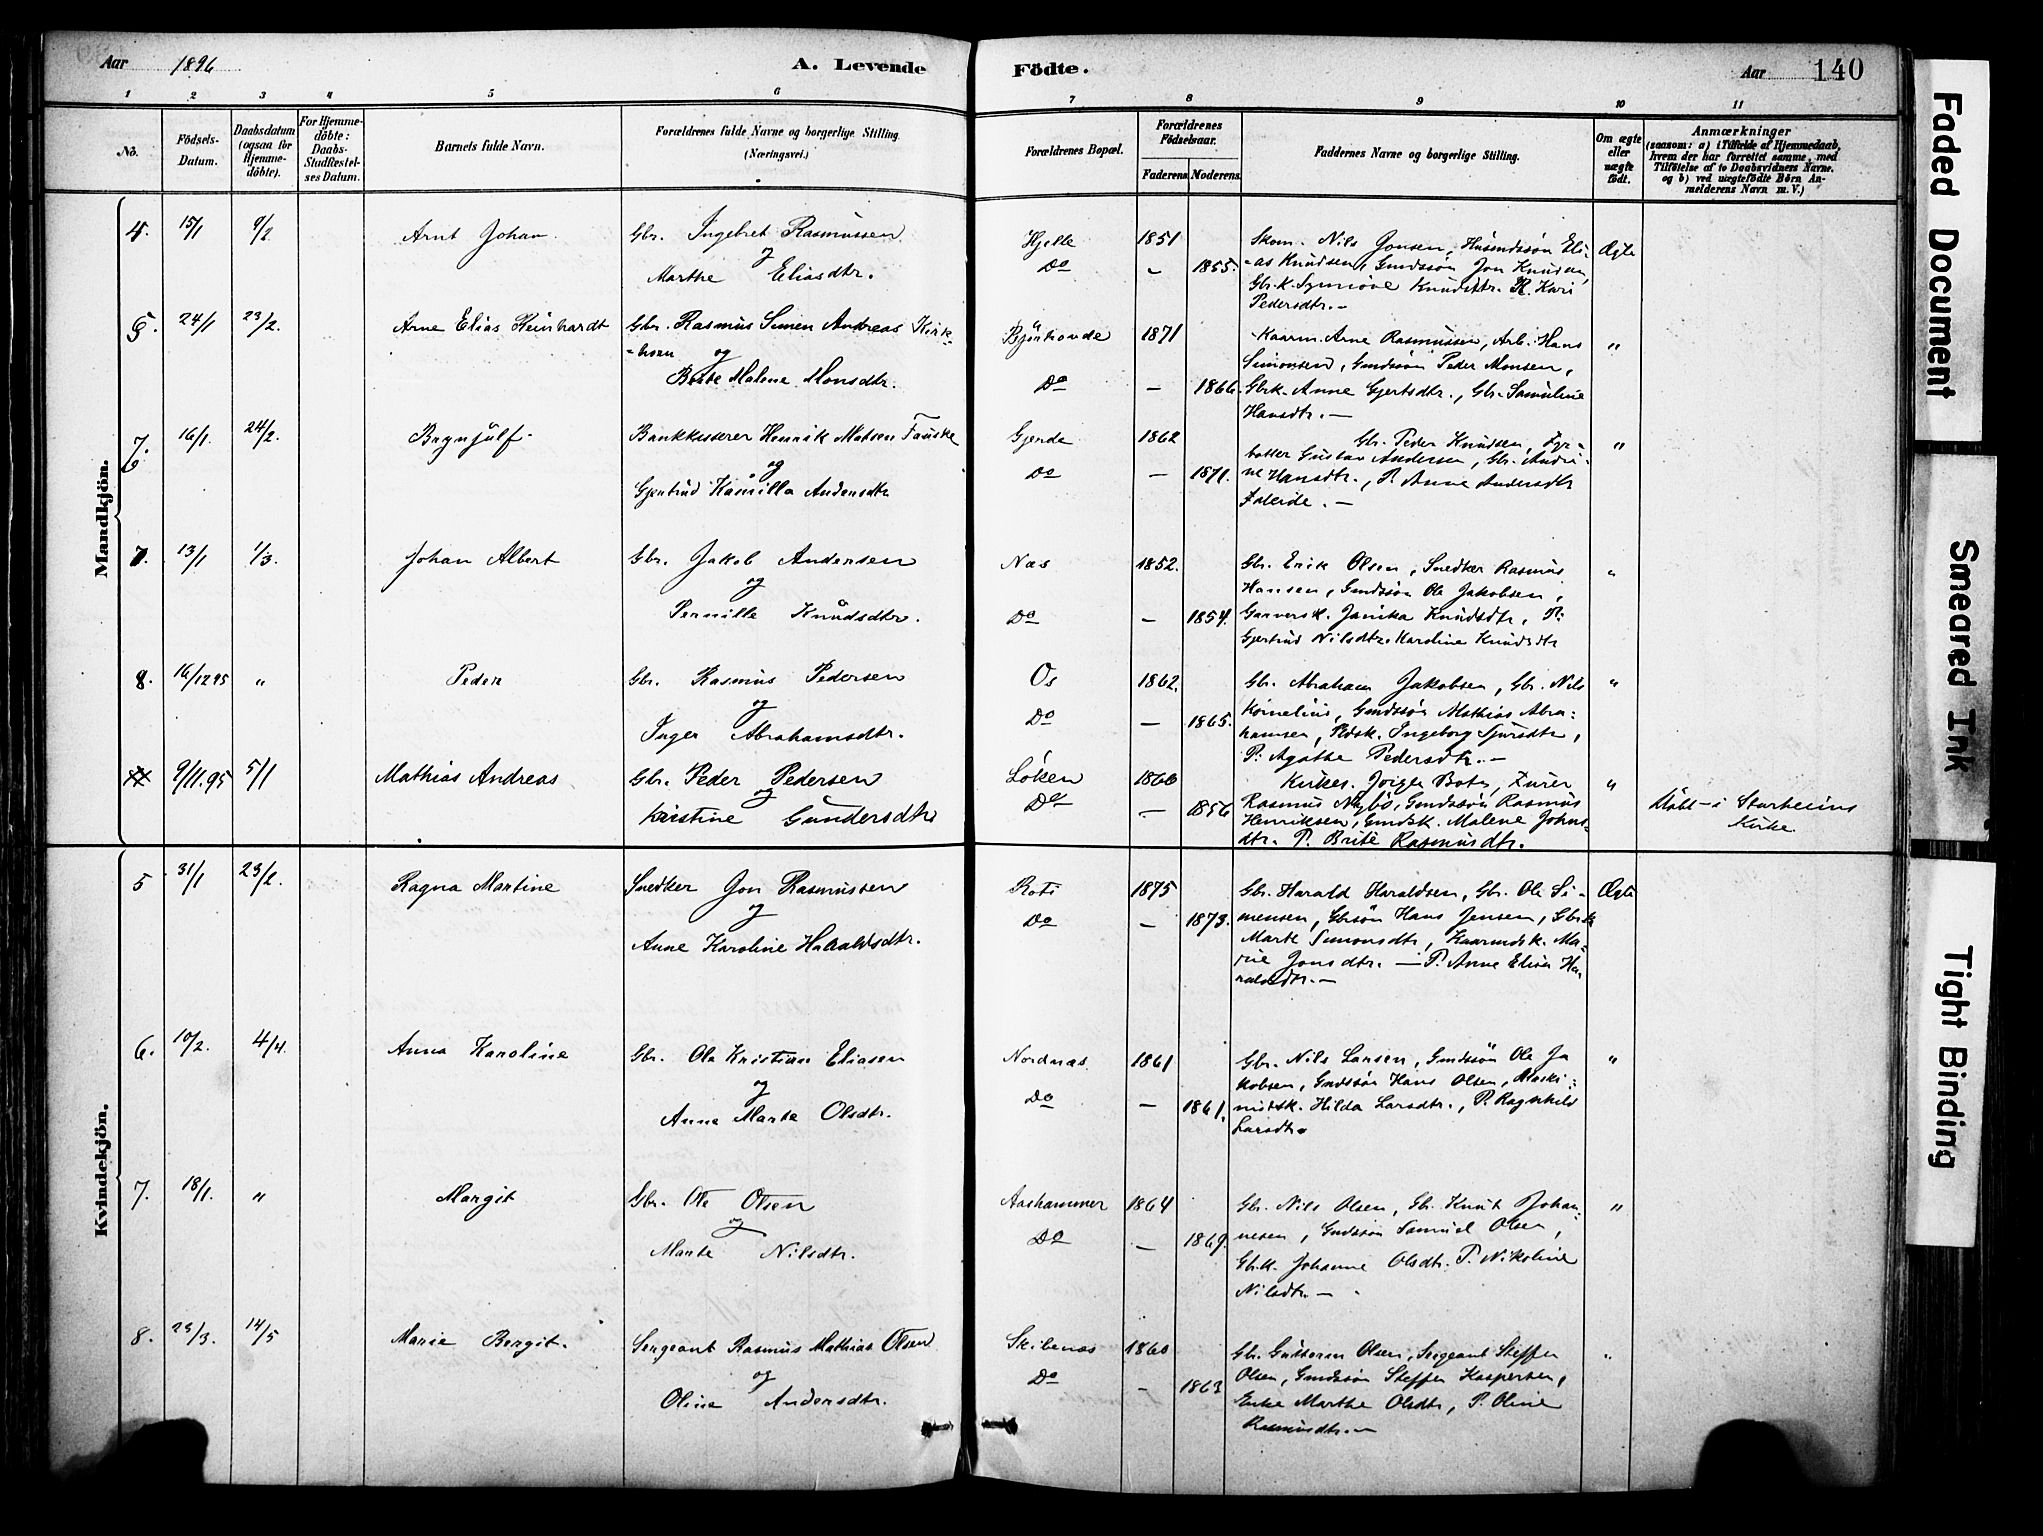 Aar 1896 A. Levende Födte. Aar 140
1 2 3 4 5 6 7 8 9 10 11
No. Födsels-Datum. Daabsdatum (ogsaa for Hjemme-döbte). For Hjemme-döbte: Daabs-Stadfæstel-ses Datum. Barnets fulde Navn. Forældrenes fulde Navne og borgerlige Stilling. (Næringsvei.) Forældrenes Bopæl. Forældrenes Födselsaar. Faderens. Moderens. Faddernes Navne og borgerlige Stilling. Om ægte eller uægte födt. Anmærkninger (saasom: a) i Tilfælde af Hjemmedaab, hvem der har forrettet samme, med Tilföielse af to Daabsvidners Navne, og b) ved uægtefödte Börn An-melderens Navn m. V.)
Mandkjön.
4. 15/1 9/2 Arnt Johan Gbr. Ingebret Rasmussen Hjelle 1851 Skom. Nils Jonsen, Husmdssøn Eli- Ægte
og
Marthe Eliasdtr. Do - 1855. -as Knudsen, Gmdssøn Jon Knudsen,
Gbr.k. Synnöve Knudsdtr. P. Kari
Pedersdtr. -
5. 24/1 23/2. Arne Elias Reinhardt Gbr. Rasmus Simen Andreas Kirk- 1871 Kaarm. Arne Rasmussen, Arb. Hans "
-horn og Simonsen, Gmdssøn Peder Monsen,
Berte Malene Monsdtr. Do - 1866. Gbrk. Anne Gjertsdtr., Gbr. Samuline
Hansdtr. -
6. 16/1. 24/2. Brynjulf Bankkasserer Henrik Matsen Fauske Gjerde 1862 Gbr. Peder Knudsen, "
og Gustav Andersen, Gbr. Andri-
Gjertrud Kamilla Andersdtr Do - 1871. ne Hansdtr., P. Anne Andersdtr
Faleide. -
7. 13/1 1/3. Johan Albert Gbr. Jakob Andersen Næs 1852. Gbr. Erik Olsen, Snedker Rasmus "
og Hansen, Gmdssøn Ole Jakobsen,
Pernille Knudsdtr. Do - 1854. Garversk. Janika Knudsdtr, P:
Gjertrud Nilsdtr. Karoline Knudsdtr
8. 16/12 95 " Peder Gbr. Rasmus Pedersen Os 1862. Gbr. Abraham Jakobsen, Gbr. Nils "
og Kornelius, Gmdssøn Mathias Abra-
Inger Abrahamsdtr. Do - 1865. hamsen, Ingeborg Sjursdtr,
P. Agathe Pedersdtr. -
9/11.95 5/1 Mathias Andreas Gbr. Peder Pedersen Løken 1866 Kirkes. Jörgen Boty, "
og
Kirstine Gundersdtr Do - 1856 Rasmus Nybö, Gmdssøn Rasmus Döbt i Starheims
Henriksen, Gmdsk. Malene Johns- Kirke
dtr. P. Brite Rasmusdtr.
Kvindekjön.
5 31/1 23/2. Ragna Martine Snedker Jon Rasmussen Roti 1875 Gbr. Harald Haraldsen, Gbr. Ole Si- Ægte
og mensen, Gbrsøn Hans Jensen, Gbrsk
Anne Karoline Haraldsdtr. Do - 1873. Marte Simonsdtr, Kaarmdsk. Ma-
rie Jonsdtr. - P. Anne Elisa Ha-
raldsdtr. -
6. 10/2. 4/4. Anna Karoline Gbr. Ole Kristian Eliasen Nordnæs 1861 Gbr. Nils Larsen, Gmdssøn Ole Ja "
og kobsen, Gmdssøn Hans Olsen, Maski-
Anne Marte Olsdtr. Do - 1861. nistsk. Hilda Larsdtr., P. Ragnhild
Larsdtr.
7. 18/1. " Margit Gbr. Ole Olsen Aashammer 1864 Gbr. Nils Olsen, Gbr. Knut Johan- "
og nesen, Gmdssøn Samuel Olsen,
Marte Nilsdtr. Do - 1869. Gbr.k. Johanne Olsdtr. P. Nikoline
Nilsdtr. -
8. 23/3. 14/5 Marie Bergit. Sergeant Rasmus Mathias Olsen Skibenes 1860 Gbr. Guttorm Olsen, Sergeant Steffen "
og Olsen, Gmdssøn Steffen Kaspersen,
Oline Andersdtr. Do - 1863 Enke Marthe Olsdtr, P. Oline
Rasmusdtr. -
Faded Document
Smeared Ink
Tight Binding